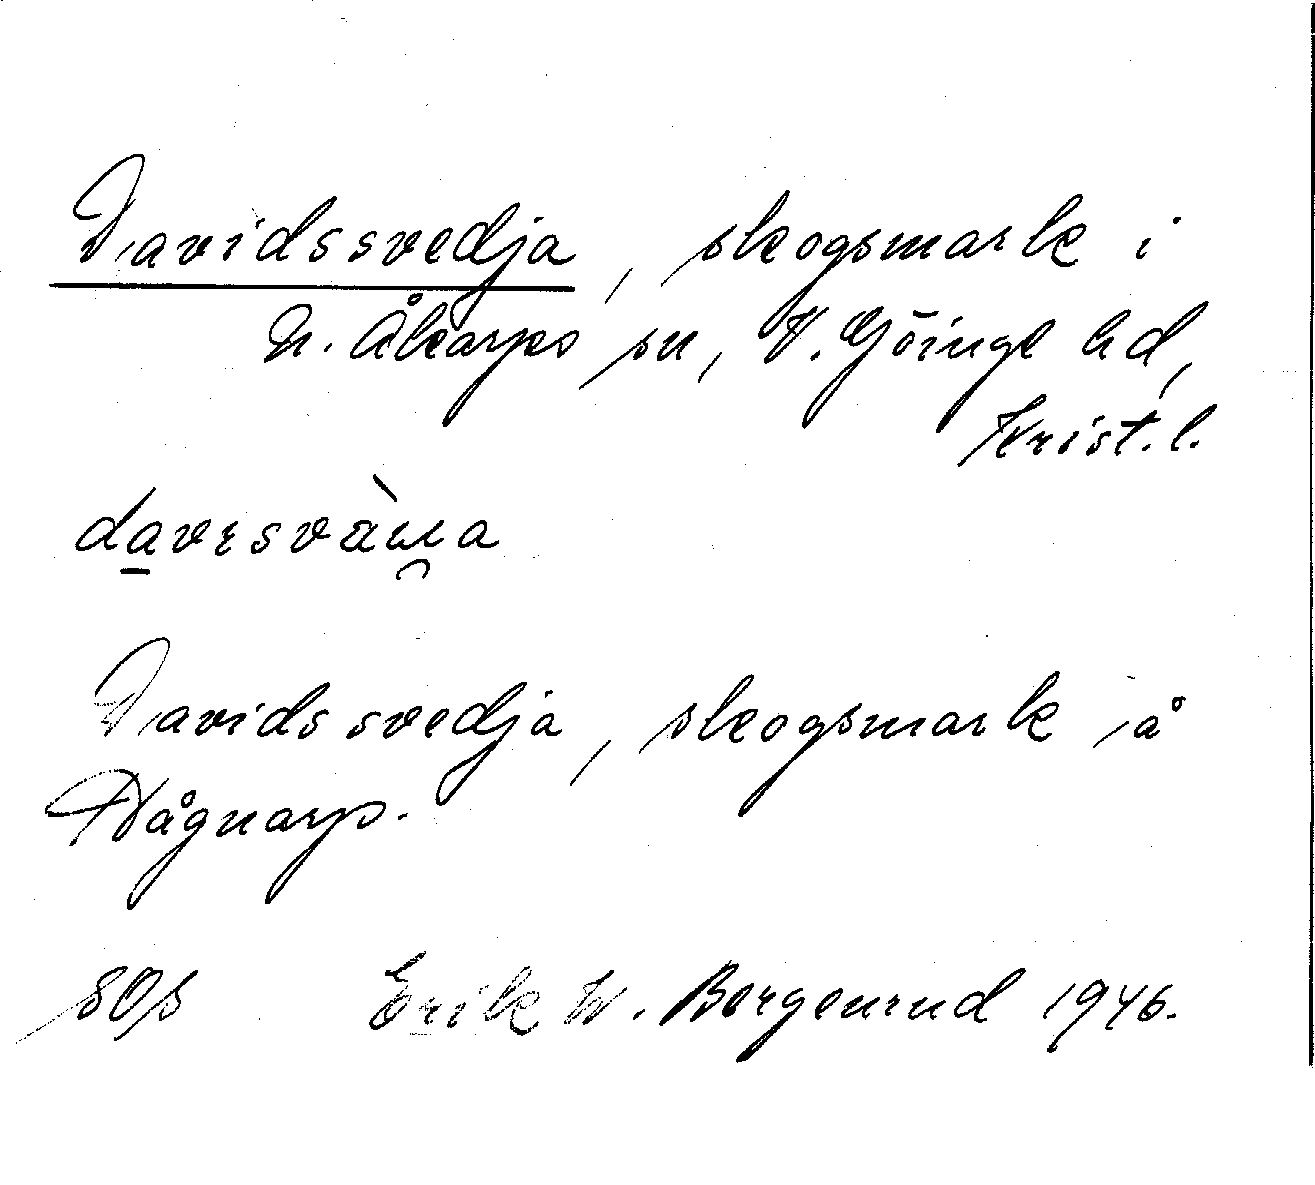 Davidssvedja, skogsmark i
N. Åkarps sn, V. Göinge hd,
Krist. l.
Davidssvedja, skogsmark på
Vågnarp.
SOS Erik W. Bergenrud 1946.